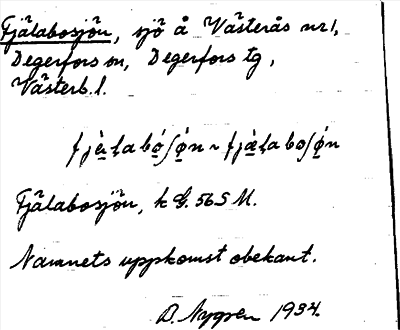 Fjälabosjön, sjö å Västerås nr 1,
Degerfors sn, Degerfors tg,
Västerb. l.
Fjälabosjön, k G. 565 M.
Namnets uppkomst obekant.
D. Nygren 1934.